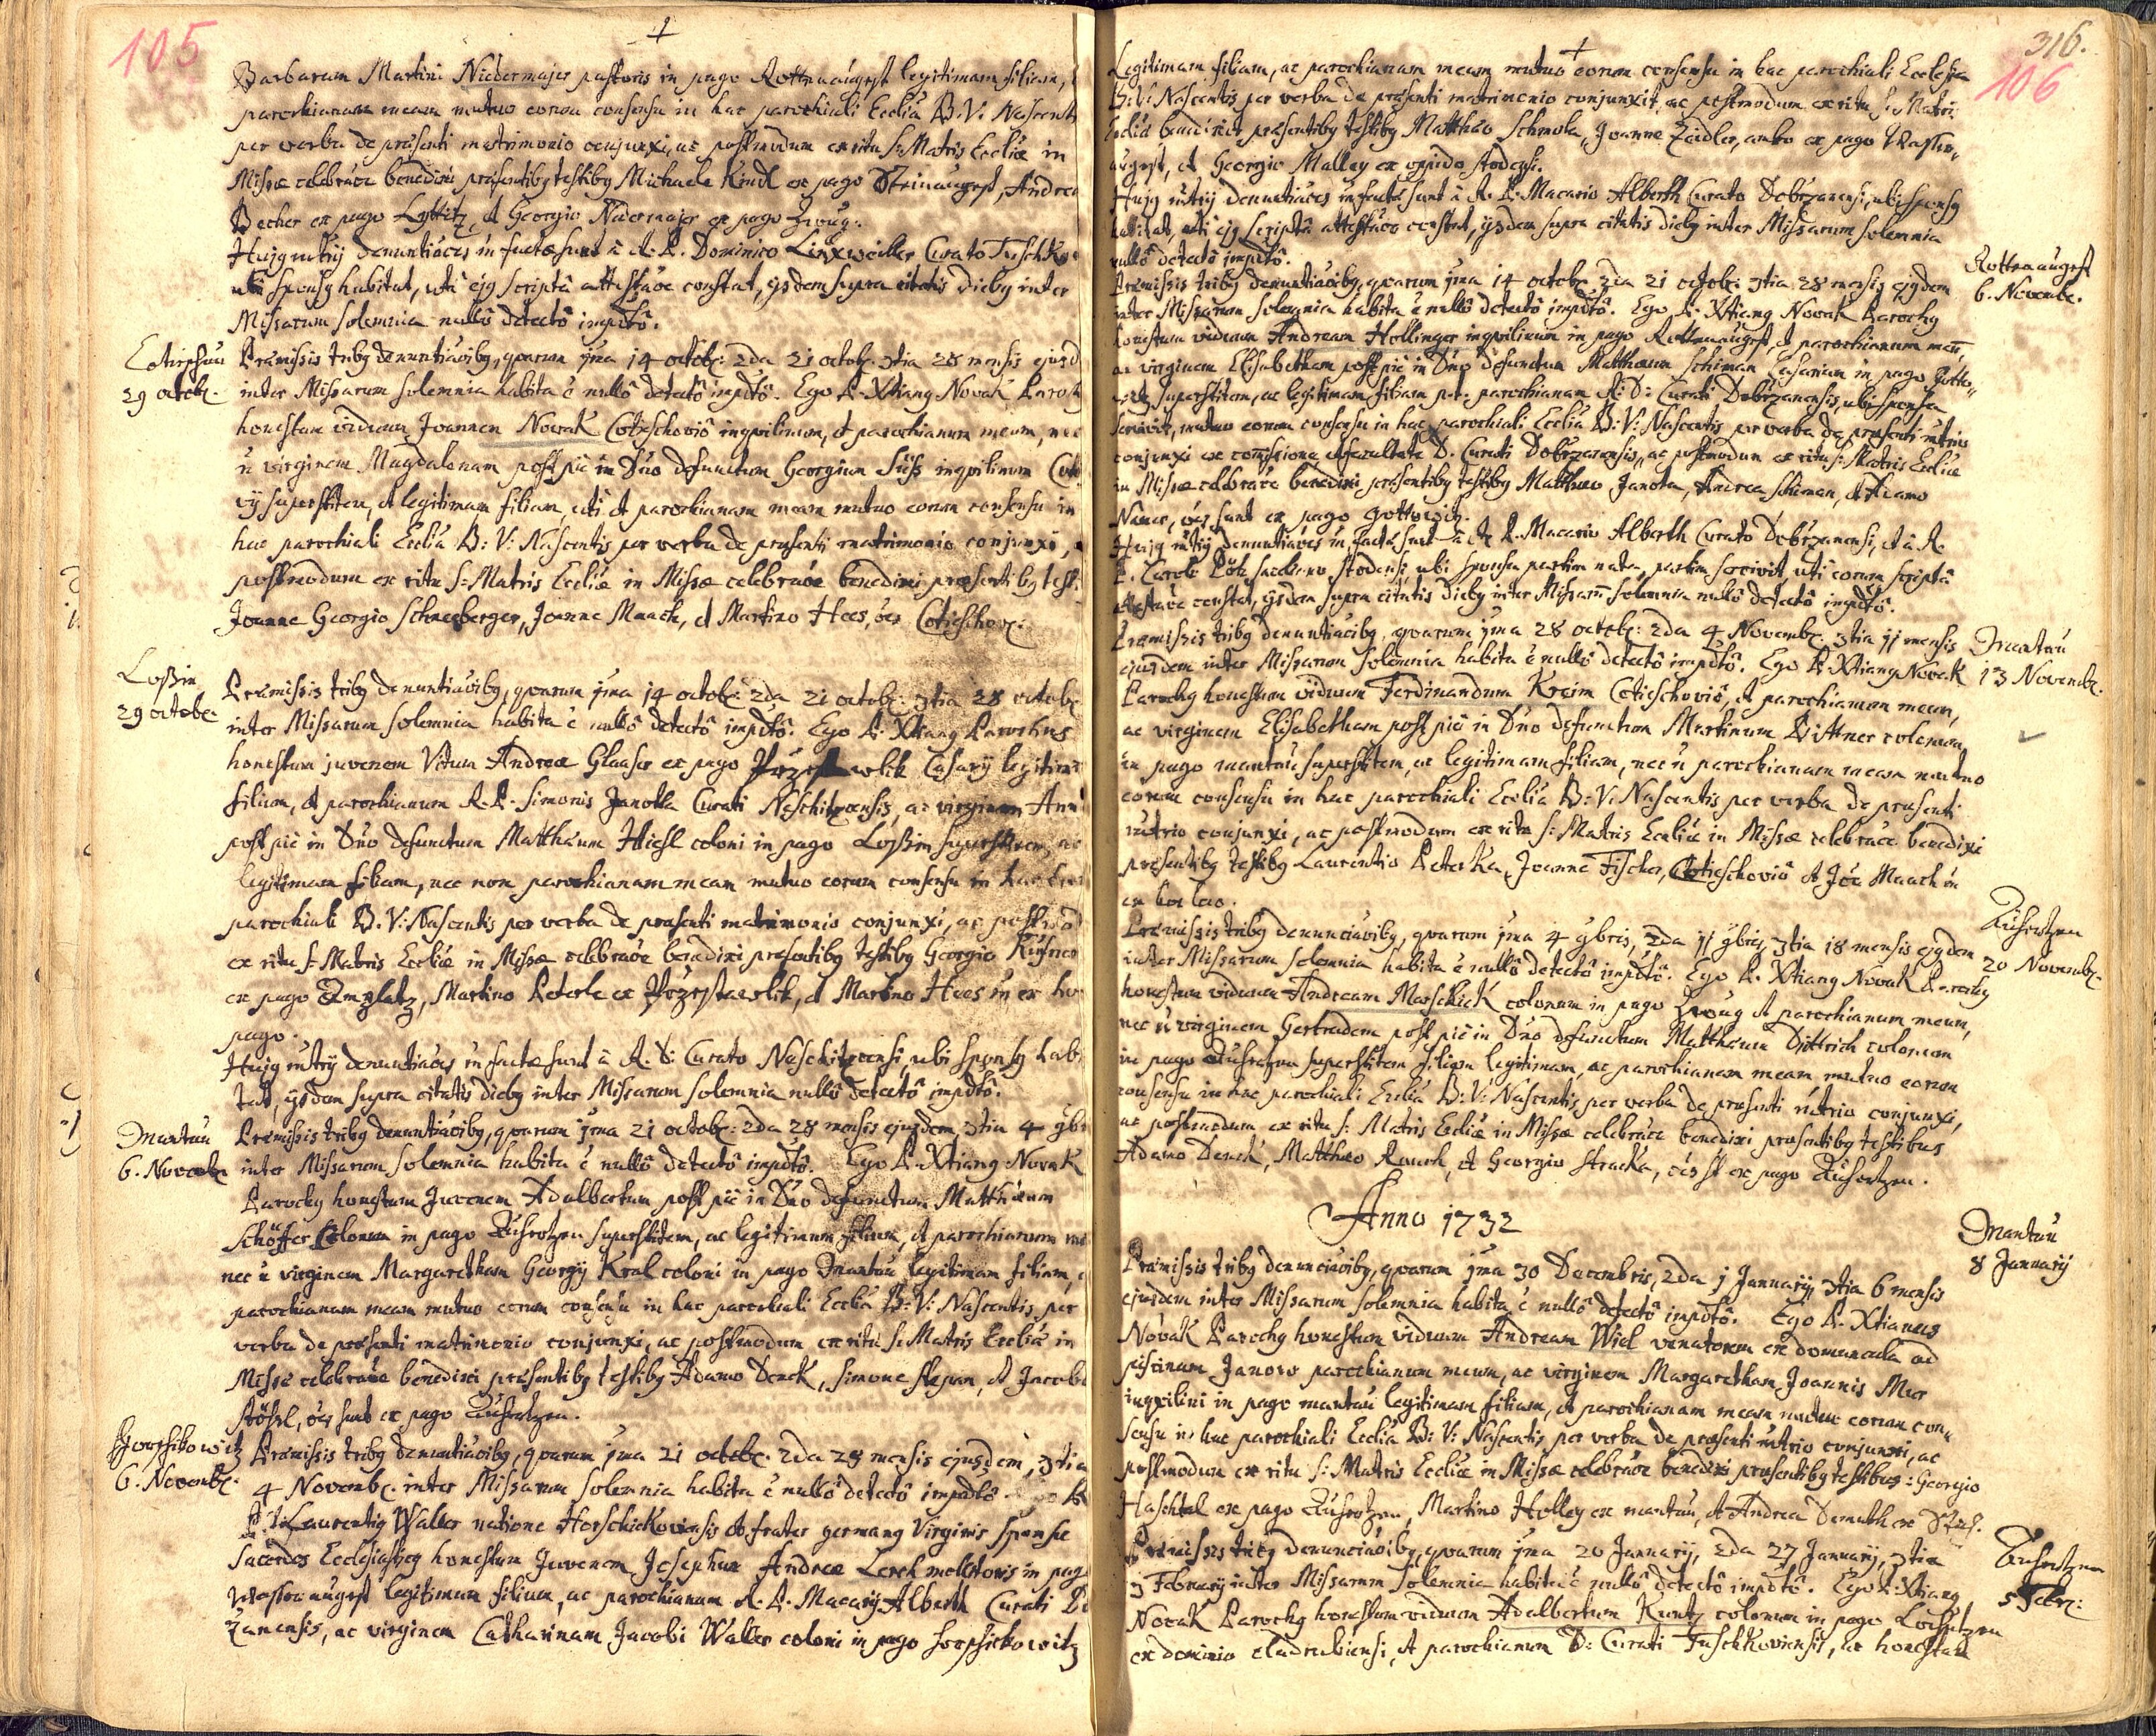 105
Barbaram Martini Niedermajer pastoris in pago Rottenaugest legitimam filiam,
parochianam meam mutuo eorum consensu in hac parochiali Ecclia B. V. Nascent
per verba de præsenti matrimonio conjunxi, ac postmodum ex ritu S: Matris Ecclæ in
Missæ celebraõe benedixi præsentibg testibg Michaele Kindl ex pago Steinaugest, Andrea
Becher ex pago Lyttitz, et Georgio Nidermajer ex pago Zwug.
Hujg mtrij denuntiaões in factæ sunt à R. P. Dominico Linxweiller Curato Tuschko
ubi sponsg habitat, uti ejg scriptâ attestaõe constat, ijsdem supra citatis diebg inter
Missarum solemnia nullô detectô impdtô.
Cotieschau
29 octob:
Præmissis tribg denuntiaõibg, quarum 1ma 14 octob: 2da 21 octob: 3tia 28 mensis ejusd
inter Missarum solemnia habita ẽ nullô detectô impdtô. Ego P. Xtiang Novak Paroch
honestum viduum Joannem Novak Cotieschoviô inquilinum, et parochianum meum, nec
ñ virginem Magdalenam post piè in Dño defunctum Georgium Siss inquilinum Coti
vÿ superstitem, et legitimam filiam, uti et parochianam meam mutuo eorum consensu in
hac parochiali Ecclia B: V: Nascentis per verba de præsenti matrimonio conjunxi,
postmodum ex ritu S: Matris Ecclæ in Missæ celebraõe benedixi præsentibg test.
Joanne Georgio Schneeberger, Joanne Maach, et Martino Hees, oẽs Cotieschov:
Loßin
29 octobr
Præmissis tribg denuntiaõibg, quarum 1ma 14 octob: 2da 21 octob: 3tia 28 octob:
inter Missarum solemnia habita ẽ nullô detectô impdtô. Ego P. Xtiang Parochus
honestum juvenem Vitum Andreæ Glaaser ex pago Przestawlik Casarij legitim
filium, et parochianum R. P. Simonis Janotka Curati Neschitzensis, ac virginem Ann
post piè in Dño defunctum Matthæum Hiesl coloni in pago Loßin superstitem, ac
legitimam filiam, nec non parochianam meam mutuo eorum consensu in hac Eccl
parochiali B. V: Nascentis per verba de præsenti matrimonio conjunxi, ac postmod
ex ritu S: Matris Ecclæ in Missæ celebraõe benedixi præsentibg testibg Georgio
ex pago Amplatz, Martino Peterle ex Przestawlik, et Martino Hees in ex hoc
pago.
Hujg mtrij denuntiaões in factæ sunt à R. D: Curato Neschitzensi, ubi sponsg habi
tat, ijsdem supra citatis diebg inter Missarum solemnia nullô detectô impdtô.
Mantau
6. Novemb:
Præmissis tribg denuntiaõibg, quarum 1ma 21 octob: 2da 28 mensis ejusdem 3tia 4 9br
inter Missarum solemnia habita ẽ nullô detectô impdtô. Ego P. Xtiang Novak
Parochg honestum Juvenem Adalbertum post piè in Dño defunctum Matthæum
Schöffer Colonum in pago Auhertzen superstitem, ac legitimum filium, et parochianum me
nec ñ virginem Margaretham Georgij Kral coloni in pago Mantau legitimam filiam,
parochianam meam mutuo eorum consensu in hac parochiali Ecclia B: V: Nascentis per
verba de præsenti matrimonio conjunxi, ac postmodum ex ritu S: Matris Ecclæ in
Missæ celebraõe benedixi præsentibg testibg Adamo Denck, Simone Stepan, et Jacobo
Stössl, oẽs sunt ex pago Auhertzen.
Horschikowitz
6. Novemb:
Præmissis tribg denuntiaõibg, quarum 1ma 21 octob: 2da 28 mensis ejusdem, 3tia
4 Novemb: inter Missarum solemnia habita ẽ nullô detectô impdtô.
Laurentig Waller natione Horschickoviensis et frater germang Virginis sponsæ
Sacerdos Ecclesiasticg honestum Juvenem Josephum Andreæ Lerch molitoris in pago
Wasseraugest legitimum filium, ac parochianum R. P. Macarij Alberth Curati D
žanensis, ac virginem Catharinam Jacobi Waller coloni in pago Horschikowitz
316.
106
Legitimam filiam, ac parochianam meam mutuo eorum consensu in hac parochiali Ecclesia
B: V: Nascentis per verba de præsenti matrimonio conjunxit, ac postmodum ex ritu S: Matris
Ecclæ benedixit præsentibg testibg Matthæo Schmola, Joanne Zeidler, ambo ex pago Wasser„
augest, et Georgio Malley ex oppido Stodensi.
Hujg mtrij denuntiaões in factæ sunt à R. P. Macario Alberth Curato Dobrzanensi, ubi sponsg
habitat, uti ejg scriptâ attestaõe constat, ijsdem supra citatis diebg inter Missarum solemnia
nullô detectô impdtô.
Rottenaugest
6. Novemb:
Præmissis tribg denuntiaõibg, quarum 1ma 14 octob: 2da 21 octob: 3tia 28 mensis ejgdem
inter Missarum solemnia habita ẽ nullô detectô impdtô. Ego P. Xtiang Novak Parochg
honestum viduum Andream Hollinger inquilinum in pago Rottenaugest, et parochianum meũ,
ac virginem Elisabetham post piè in Dño defunctum Matthæum Schiman Casarium in pago Gotto„
witz superstitem, ac legitimam filiam p.t. parochianam R: D: Curati Dobrzanensis, ubi sponsa
servivit, mutuo eorum consensu in hac parochiali Ecclia B: V: Nascentis per verba de præsenti mtrio
conjunxi ex comissione et facultate D. Curati Dobrzanensis, ac postmodum ex ritu S: Matris Ecclæ
in Missæ celebraõe benedixi præsentibg testibg Matthæo Janota, Andrea Schiman, et Adamo
Nemec, oẽs sunt ex pago Gottowitz.
Hujg mtrij denuntiaões in factæ sunt à R. P. Macario Alberth Curato Dobrzanensi, et à R.
P. Carolo Götz sacellano Stodensi, ubi sponsa partim nata, partim servivit uti eorum scriptâ
attestaõe constat, ijsdem supra citatis diebg inter Missarũ solemnia nullô detectô impdtô.
Mantau
13 Novemb:
Præmissis tribg denuntiaõibg, quarum 1ma 28 octob: 2da 4 Novemb: 3tia 11 mensis
ejusdem inter Missarum solemnia habita ẽ nullô detectô impdtô. Ego P. Xtiang Novak
Parochg honestum viduum Ferdinandum Kreim Cotieschoviô, et parochianum meum,
ac virginem Elisabetham post piè in Dño defunctum Martinum Bittner colonum
in pago mantau superstitem, ac legitimam filiam, nec ñ parochianam meam mutuo
eorum consensu in hac parochiali Ecclia B: V: Nascentis per verba de præsenti
mtrio conjunxi, ac postmodum ex ritu S: Matris Ecclæ in Missæ celebraõe benedixi
præsentibg testibg Laurentio Peterka, Joanne Fischer, Cotieschoviô et Jõe Maach
ex hoc loco.
Auhertzen
20 Novemb:
Præmissis tribg denunciaõibg, quarum 1ma 4 9bris, 2da 11 9bris, 3tia 18 mensis ejgdem
inter Missarum solemnia habita ẽ nullô detectô impdtô. Ego P. Xtiang Novak Parochg
honestum viduum Andream Maschick colonum in pago Zwug et parochianum meum,
nec ñ virginem Gertrudem post piè in Dño defunctum Matthæum Dittrich colonum
in pago Auhertzen superstitem filiam legitimam, ac parochianam meam mutuo eorum
consensu in hac parochiali Ecclia B: V: Nascentis per verba de præsenti mtrio conjunxi,
ac postmodum ex ritu S: Matris Ecclæ in Missæ celebraõe benedixi præsentibg testibus
Adamo Denck, Matthæo Rauch, et Georgio Stracka, oẽs st ex pago Auhertzen.
Anno 1732
Mantau
8 Januarij
Præmissis tribg denunciaõibg, quarum 1ma 30 Decembris, 2da 1 Januarij, 3tia 6 mensis
ejusdem inter Missarum solemnia habita ẽ nullô detectô impdtô. Ego P. Xtianus
Novak Parochg honestum viduum Andream Wiel venatorem ex domuncula ad
piscinam Janow parochianum meum, ac virginem Margaretham Joannis Mer
inquilini in pago mantau legitimam filiam, et parochianam meam mutuo eorum con„
sensu in hac parochiali Ecclia B: V: Nascentis per verba de præsenti mtrio conjunxi, ac
postmodum ex ritu S: Matris Ecclæ in Missæ celebraõe benedixi præsentibg testibus: Georgio
Haschtel ex pago Auhertzen, Martino Holley ex mantau, et Andrea Demuth ex
Auhertzen
5 Febr:
Præmissis tribg denunciaõibg, quarum 1ma 20 Januarij, 2da 27 Januarij, 3tia
3 Februarij inter Missarum solemnia habita ẽ nullô detectô impdtô. Ego P. Xtiang
Novak Parochg honestum viduum Adalbertum Kuntz colonum in pago Lochutzen
ex dominio Cladrubiensi, et parochianum D: Curati Tuschkoviensis, ac honestam